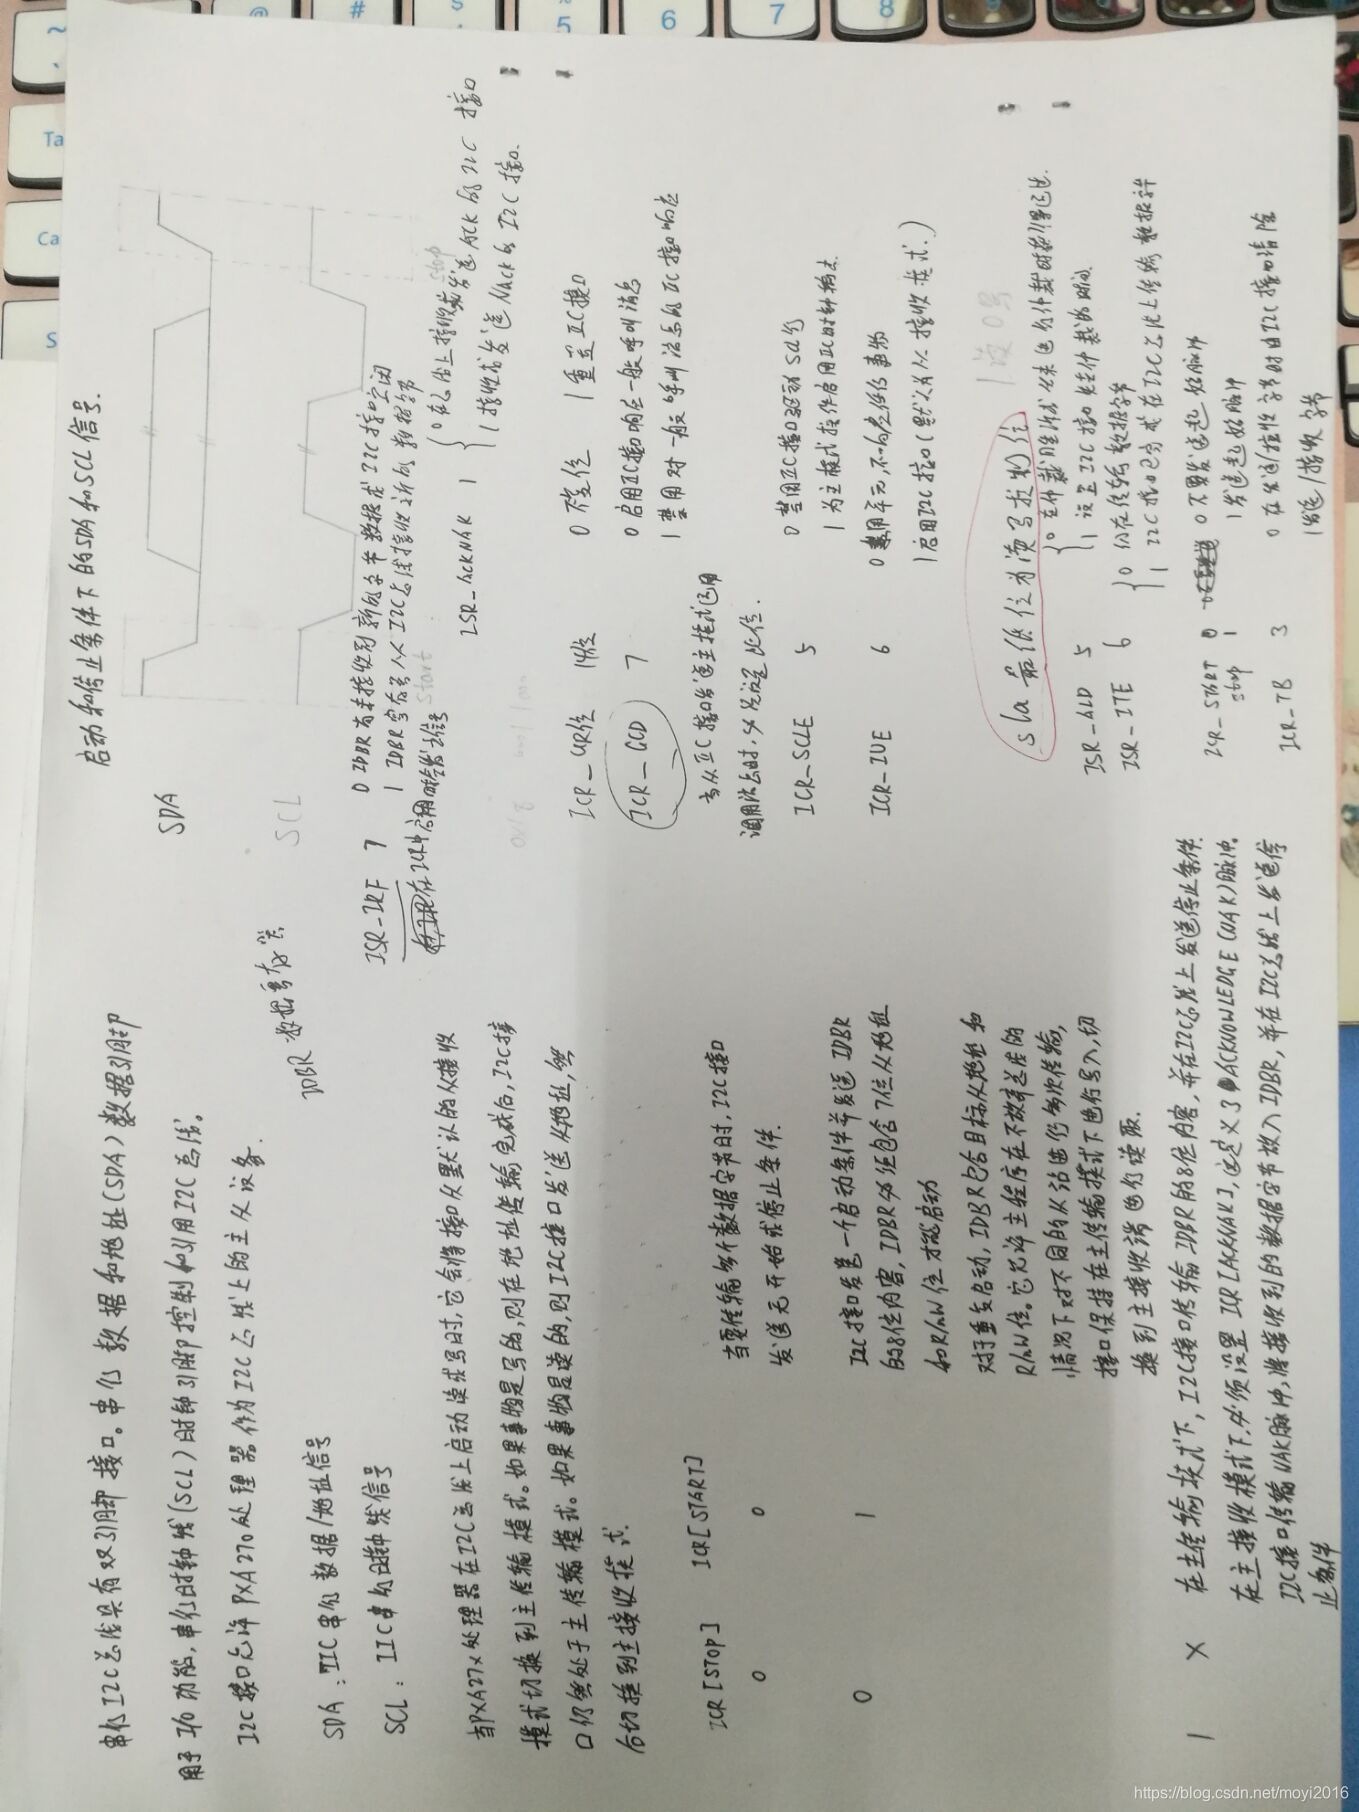 串行I2C总线具有双引脚接口。串行数据和地址(SDA)数据引脚
用于I/O功能,串行时钟线(SCL)时钟引脚控制和引用I2C总线。
I2C接口允许PXA270处理器作为I2C总线上的主从设备.
SDA:IIC串行数据/地址信号
SCL:IIC串行时钟线信号
IDBR 数据寄存器
当PXA27x处理器在I2C总线上启动读或写时,它会将接口从默认的从接收
模式切换到主传输模式。如果事物是写的,则在地址传输完成后,I2C接
口仍然处于主传输模式。如果事物是读的,则I2C接口发送从地址,然
后切换到主接收模式.
ICR[STOP] ICR[START]
0 0 当要传输多个数据字节时,I2C接口
发送无开始或停止条件.
0 1 I2C接口发送一个启动条件并发送IDBR
的8位内容,IDBR必须包含7位从地址
和R/nW位才能启动
对于重复启动,IDBR包含目标从地址和
R/nW位。它允许主程序在不放弃总线的
情况下对不同的从站进行多次传输,
接口保持在主传输模式下进行写入,切
换到主接收端进行读取.
1 X 在主传输模式下,I2C接口传输IDBR的8位内容,并在I2C总线上发送停止条件.
在主接收模式下,必须设置ICR[ACKNAK],这定义了ACKNOWLEDGE(NAK)脉冲.
I2C接口传输NAK脉冲,将接收到的数据字节放入IDBR,并在I2C总线上发送停
止条件
启动和停止条件下的SDA和SCL信号.
SDA
SCL
ISR_IRF 7 0 IDBR尚未接收到新的字节数据或I2C接口空闲
1 IDBR寄存器从I2C总线接收新的数据字节
start
stop
ISR_ACKNAK 1 0 在总线上接收或发送ACK的I2C接口
1 接收或发送Nack的I2C接口.
ICR_UR位 14位 0 不复位 1 重置I2C接口
ICR_GCD 7 0 启用I2C接口响应一般呼叫消息
1 禁用对一般呼叫消息的I2C接口响应
当从I2C接口发送主模式通用
调用消息时,必须设置此位.
ICR_SCLE 5 0 禁用I2C接口驱动SCL行
1 为主模式操作启用I2C时钟输出
ICR_IUE 6 0 禁用单元,不响应任何事物
1 启用I2C接口(默认为从接收模式.)
1读0写
sla最低位为读写求物位
ISR_ALD 5 0 在仲裁胜利或从未进行仲裁时获得通过.
1 设置I2C接口失去仲裁的时间
ISR_ITE 6 0 仍在传输数据字节
1 I2C接口已完成在I2C总线上传输数据字节
ICR_START 0 0 不要发送起始脉冲
stop 1 1 发送起始脉冲
ICR_TB 3 0 在发送/接收字节时由I2C接口清除
1 发送/接收字节
https://blog.csdn.net/moyi2016